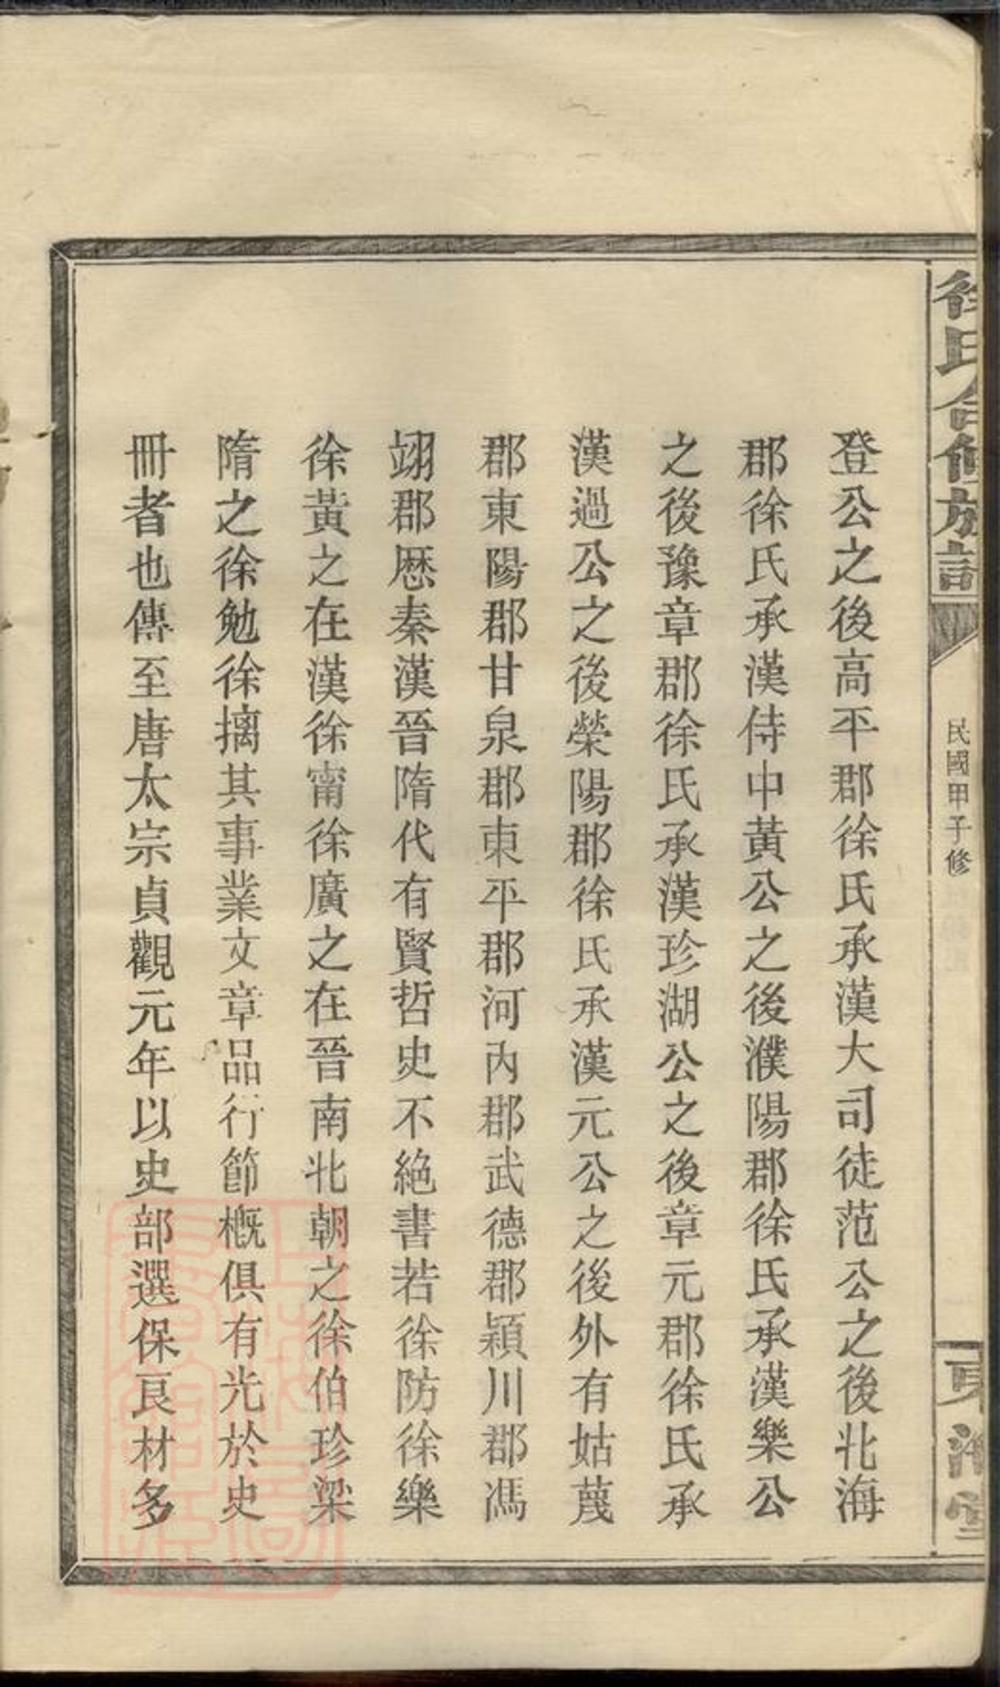 徐氏合修族譜
民國甲子修
東海堂
登公之後高平郡徐氏承漢大司徒范公之後北海
郡徐氏承漢侍中黃公之後濮陽郡徐氏承漢樂公
之後豫章郡徐氏承漢珍湖公之後章元郡徐氏承
漢過公之後榮陽郡徐氏承漢元公之後外有姑蔑
郡東陽郡甘泉郡東平郡河內郡武德郡潁川郡馮
翊郡歷秦漢晉隋代有賢哲史不絕書若徐防徐樂
徐黃之在漢徐甯徐廣之在晉南北朝之徐伯珍梁
隋之徐勉徐摛其事業文章品行節槪俱有光於史
冊者也傳至唐太宗貞觀元年以史部選保良材多